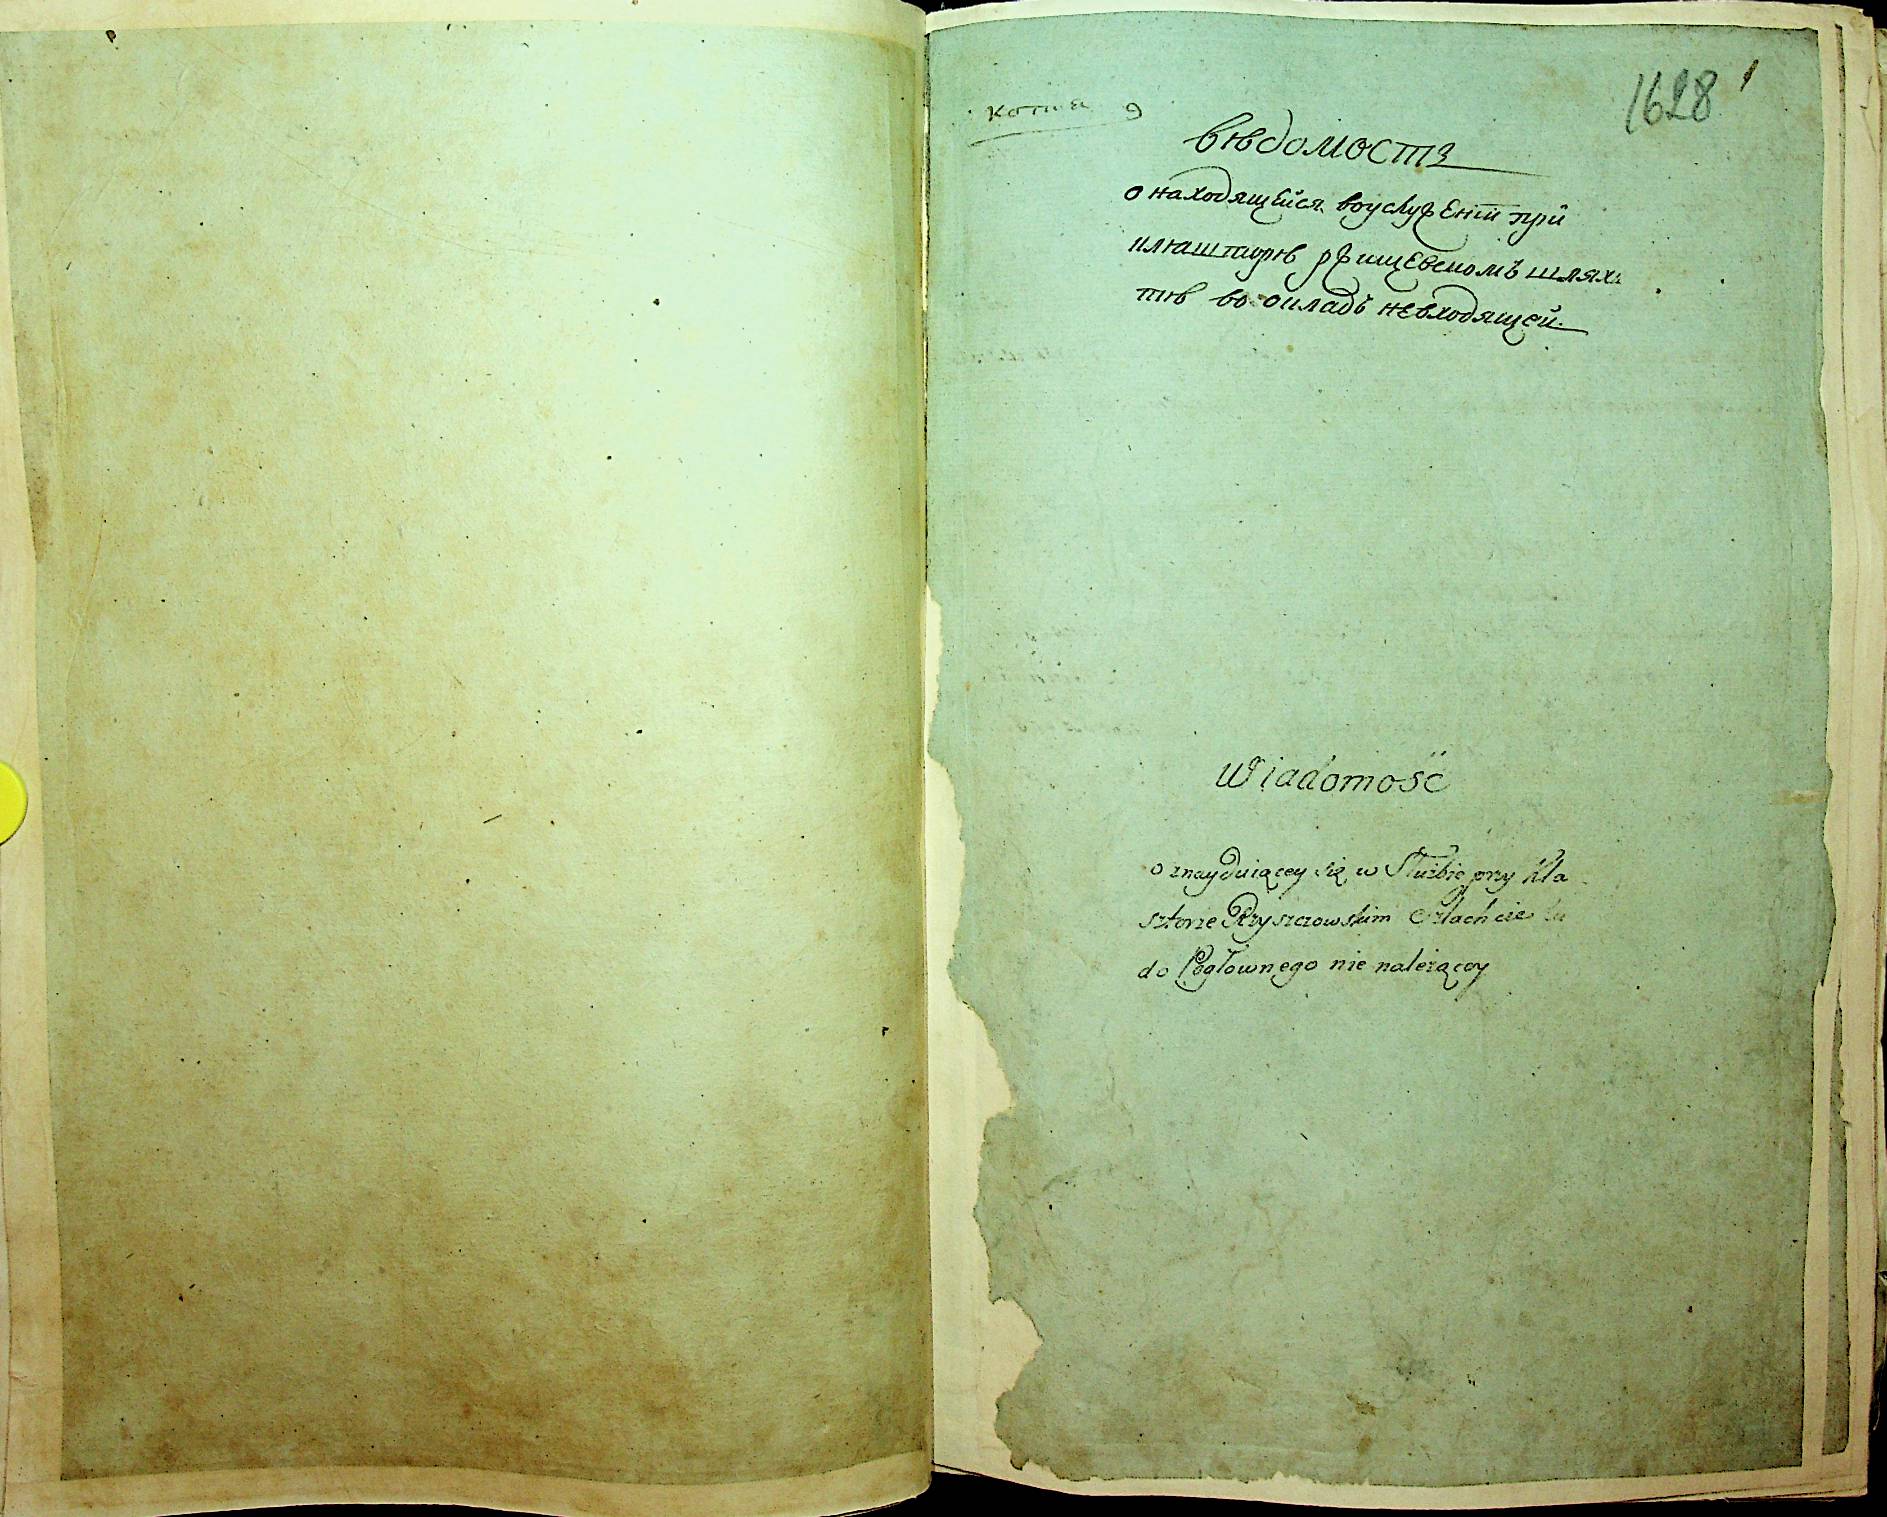 1628
копиа 9
Вѣдомость
о находящейся воуслуженіи при
кляшторѣ ржищевскомъ шлях
тѣ во окладъ невходящей.
Wiadomość
o znayduiącey się w Służbie przy Kla
sztorze Rzyszczowskim Szlachcie
do Pogłownego nie należącey